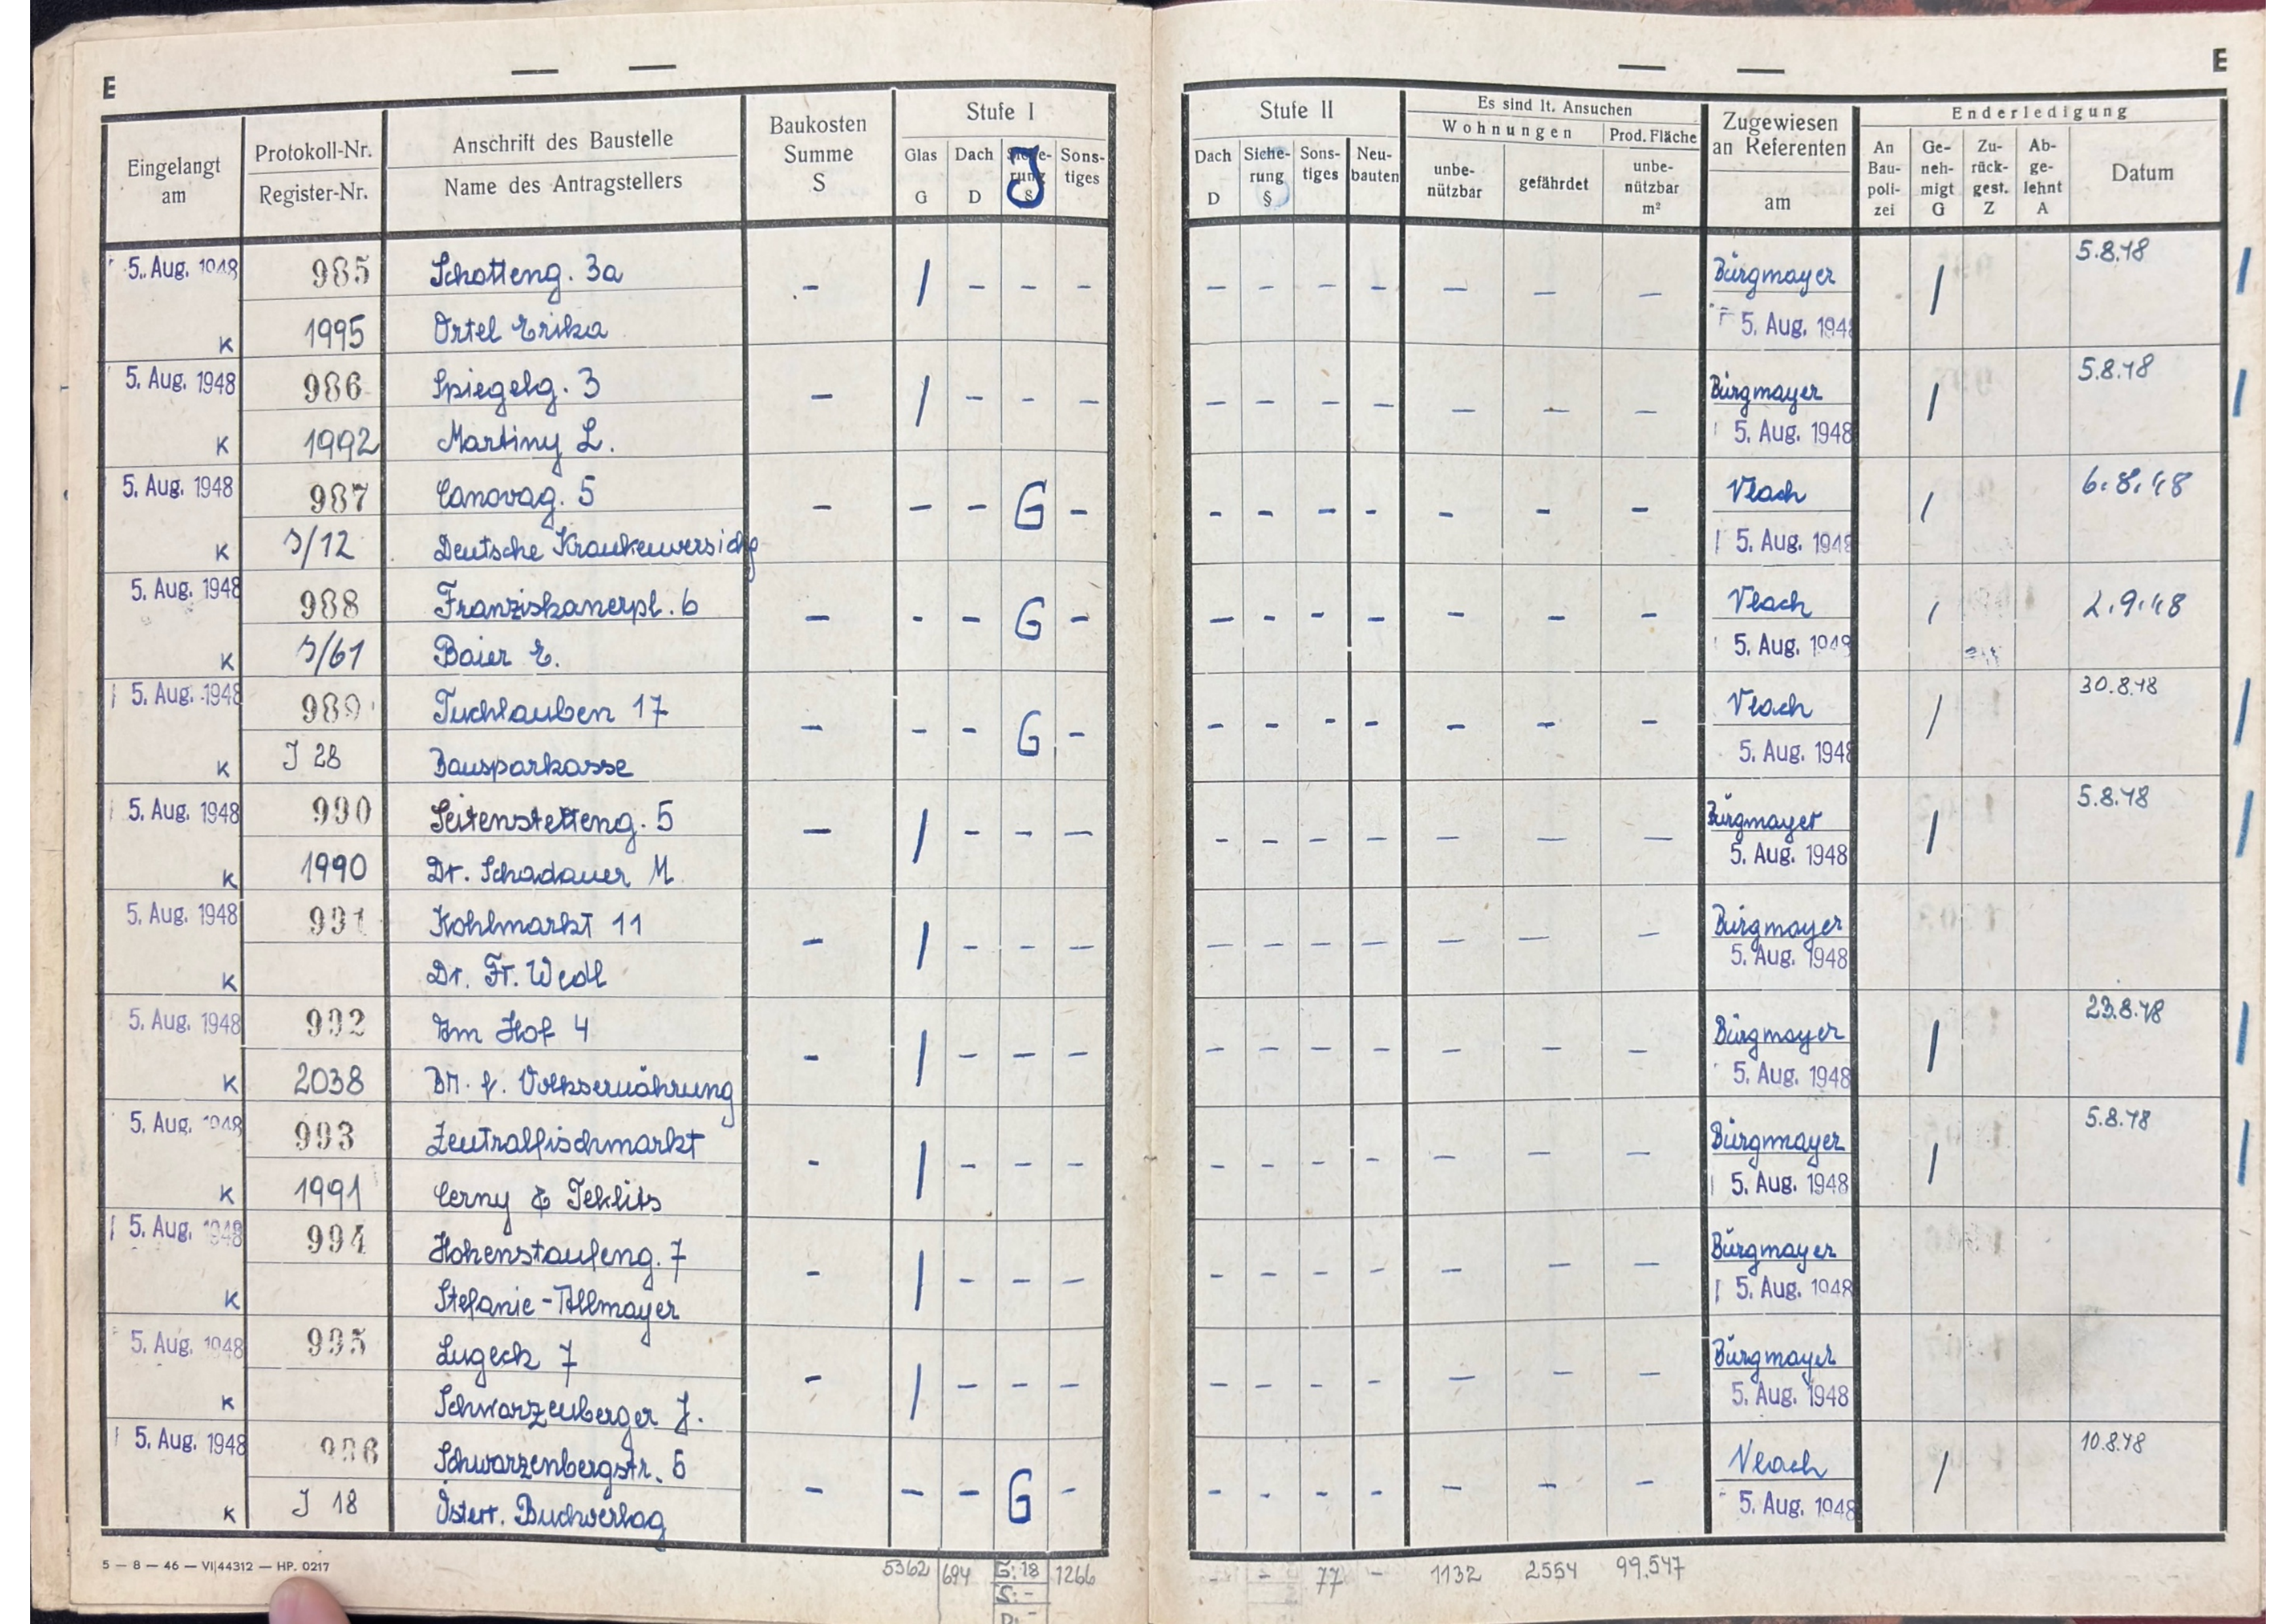 E
Eingelangt am
Protokoll-Nr.
Register-Nr.
Anschrift des Baustelle
Name des Antragstellers
Baukosten Summe S
Stufe I
Glas G
Dach D
J
Sons-tiges
E
Stufe II
Dach D
Siche-rung §
Sons-tiges
Neu-bauten
Es sind lt. Ansuchen
Wohnungen
Prod. Fläche
unbe-nützbar
gefährdet
unbe-nützbar m²
Zugewiesen an Referenten
am
Enderledigung
An Bau-poli-zei
Ge-neh-migt G
Zu-rück-gest. Z
Ab-ge-lehnt A
Datum
5. Aug. 1948 985 Schotteng. 3a - / - - - - - - - - - - Bürgmayer / 5.8.48
K 1995 Ortel Erika 5. Aug. 194
5. Aug. 1948 986 Spiegelg. 3 - / - - - - - - - - - - Bürgmayer / 5.8.48
K 1992 Martiny L. 5. Aug. 1948
5. Aug. 1948 987 Canovag. 5 - - - G - - - - - - - - Vlach / 6.8.48
K J/12 Deutsche Krankenversichg 5. Aug. 1948
5. Aug. 1948 988 Franziskanerpl. 6 - - - G - - - - - - - - Vlach / 2.9.48
K J/61 Baier E. 5. Aug. 1948
5. Aug. 1948 989 Tuchlauben 17 - - - G - - - - - - - - Vlach / 30.8.48
K J 28 Bausparkasse 5. Aug. 1948
5. Aug. 1948 990 Seitenstetteng. 5 - / - - - - - - - - - - Bürgmayer / 5.8.48
K 1990 Dr. Schadauer M. 5. Aug. 1948
5. Aug. 1948 991 Kohlmarkt 11 - / - - - - - - - - - - Bürgmayer
K Dr. Fr. Wedl 5. Aug. 1948
5. Aug. 1948 992 Am Hof 4 - / - - - - - - - - - - Bürgmayer / 23.8.48
K 2038 BM. f. Volksernährung 5. Aug. 1948
5. Aug. 1948 993 Zentralfischmarkt - / - - - - - - - - - - Bürgmayer / 5.8.48
K 1991 Cerny & Teklits 5. Aug. 1948
5. Aug. 1948 994 Hohenstaufeng. 7 - / - - - - - - - - - - Bürgmayer
K Stefanie-Allmayer 5. Aug. 1948
5. Aug. 1948 995 Lugeck 7 - / - - - - - - - - - - Bürgmayer
K Schwarzenberger J. 5. Aug. 1948
5. Aug. 1948 996 Schwarzenbergstr. 5 - - - G - - - - - - - - Vlach / 10.8.48
K J 18 Österr. Buchverlag 5. Aug. 1948
5 — 8 — 46 — VI|44312 — HP. 0217
5362 694 G: 18 1266 - - 77 - 1132 2554 99.547
S: -